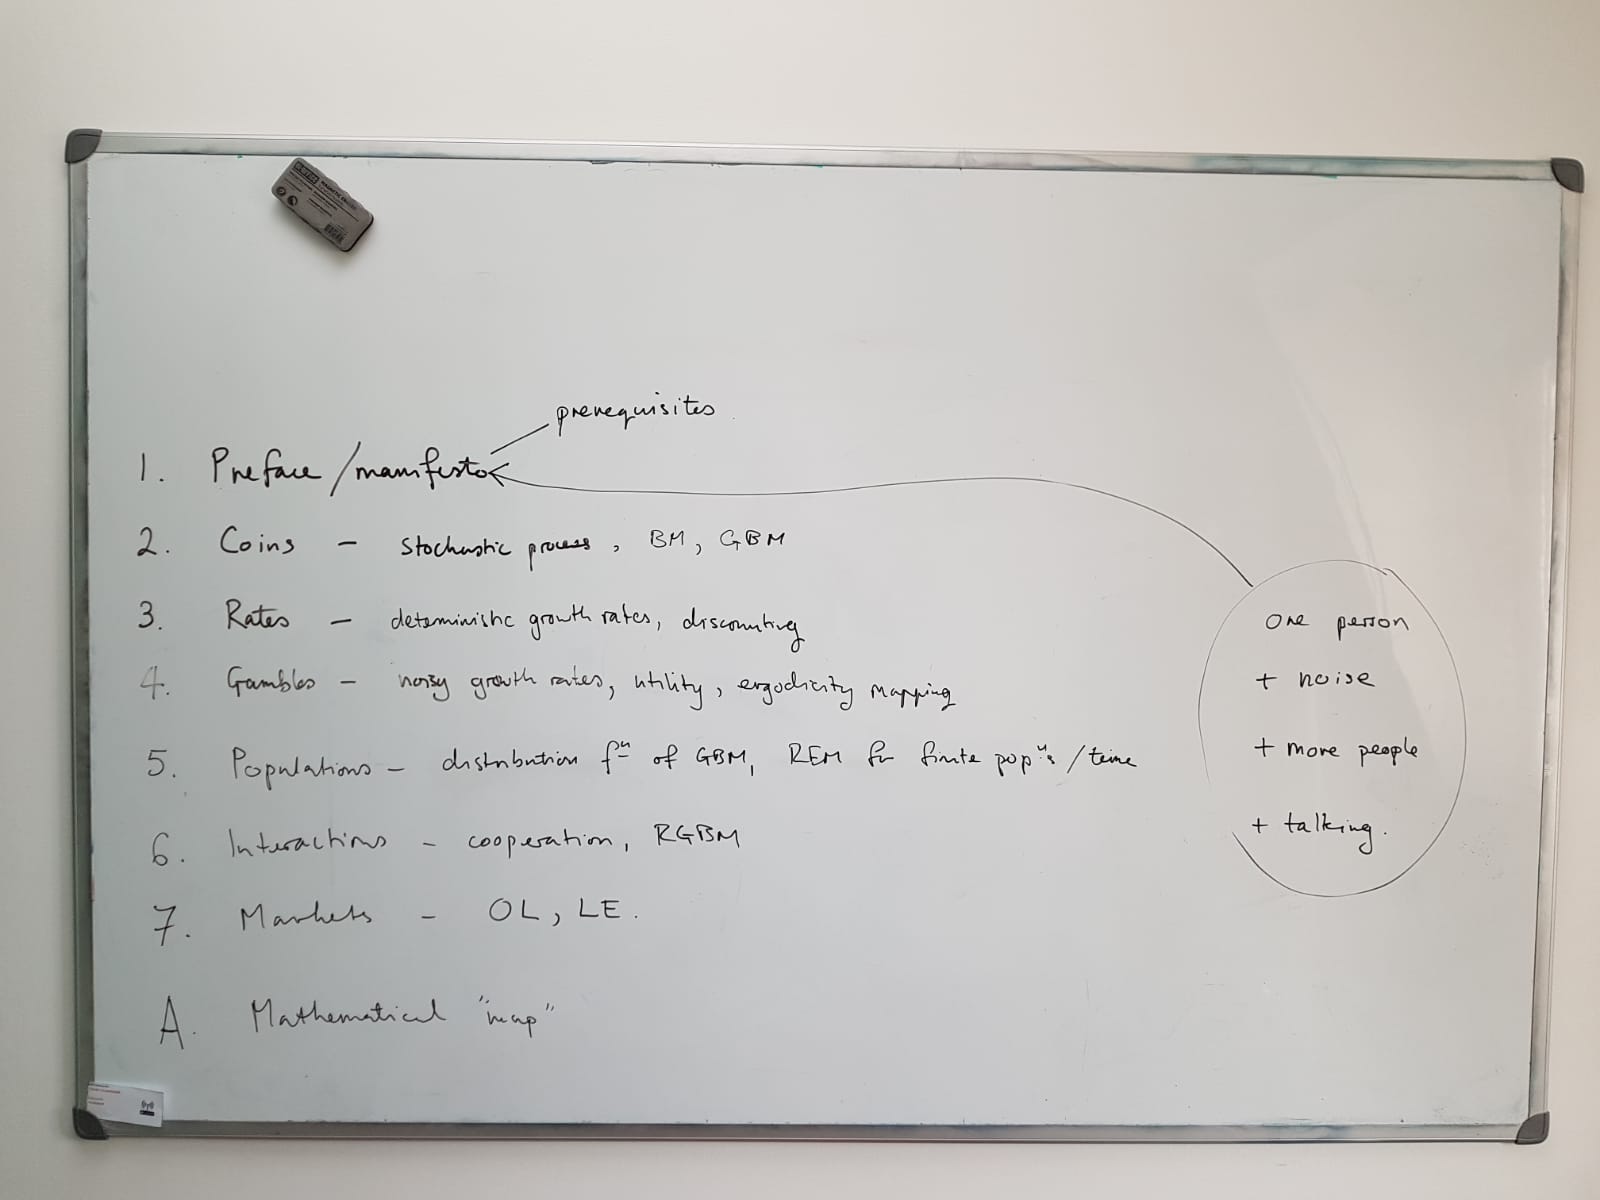 prerequisites
1. Preface / manifesto
2. Coins - stochastic process, BM, GBM
3. Rates - deterministic growth rates, discounting
4. Gambles - noisy growth rates, utility, ergodicity mapping
5. Populations - distribution fⁿ of GBM, REM for finite popⁿs / time
6. Interactions - cooperation, RGBM
7. Markets - OL, LE.
A. Mathematical "map"
one person
+ noise
+ more people
+ talking.